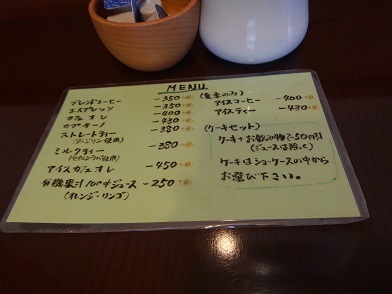 MENU
ブレンドコーヒー -350
エスプレッソ -350
カフェオレ -400
カプチーノ -430
ストレートティー -380
(ダージリン使用)
ミルクティー -380
(セイロンウバ使用)
アイスカフェオレ -450
有機果汁100%ジュース -250
(オレンジ・リンゴ)
(夏季のみ)
アイスコーヒー -400
アイスティー -430
(ケーキセット)
ケーキ+お飲み物で50円引
(ジュースは除く)
ケーキはショーケースの中から
お選び下さい。